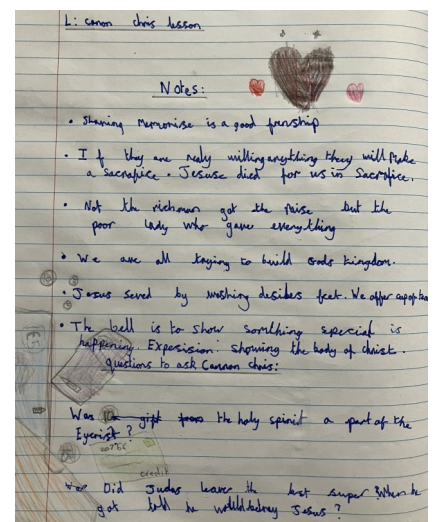 L: canon chris lesson
Notes:
• Sharing memorise is a good frenship
• If they are realy willing anything they will make
a sacrafice. Jesuse died for us in Sacrafice.
• Not the richman got the Praise but the
poor lady who gave everything
• We are all trying to build Gods Kingdom.
• Jesus served by washing desibles feet. We offer cup of tea
• The bell is to show somthing special is
happening. Exposision: showing the body of christ.
questions to ask Cannon chris:
Was the holy spirit a part of the
Eyecrist?
credit
Did Judas leave the last super when he
got told he would betray Jesus?